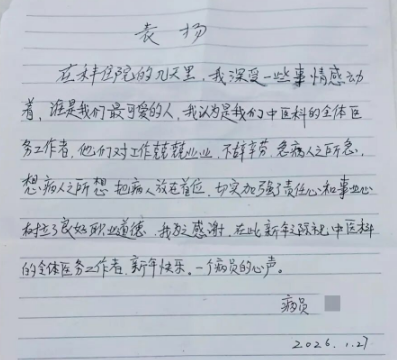 表扬
在本住院的几天里，我深受一些事情感动
着，谁是我们最可爱的人，我认为是我们中医科的全体医
务工作者，他们对工作兢兢业业，不辞辛劳，急病人之所急，
想病人之所想 把病人放在首位，切实加强了责任心和事业心
树立了良好职业道德，我表感谢，在此新年之际祝中医科
的全体医务工作者，新年快乐。一个病员的心声。
病员
2026.1.27